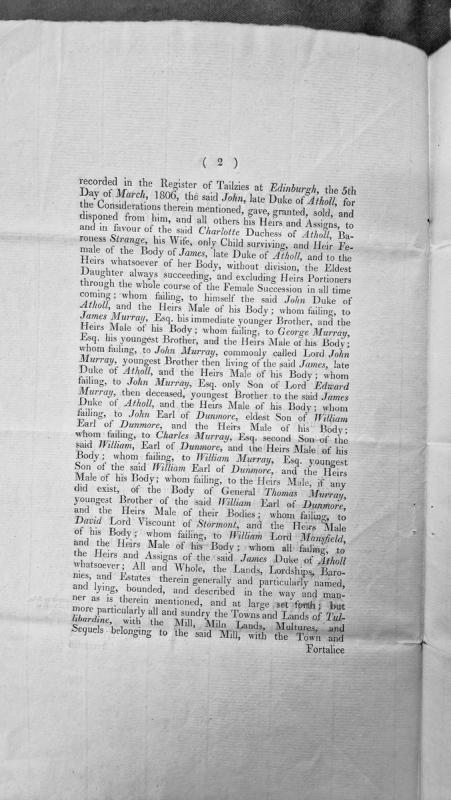 ( 2 )
recorded in the Register of Tailzies at Edinburgh, the 5th
Day of March, 1806, the said John, late Duke of Atholl, for
the Considerations therein mentioned, gave, granted, sold, and
disponed from him, and all others his Heirs and Assigns, to
and in favour of the said Charlotte Duchess of Atholl, Ba-
roness Strange, his Wife, only Child surviving, and Heir Fe-
male of the Body of James, late Duke of Atholl, and to the
Heirs whatsoever of her Body, without division, the Eldest
Daughter always succeeding, and excluding Heirs Portioners
through the whole course of the Female Succession in all time
coming; whom failing, to himself the said John Duke of
Atholl, and the Heirs Male of his Body; whom failing, to
James Murray, Esq. his immediate younger Brother, and the
Heirs Male of his Body; whom failing, to George Murray,
Esq. his youngest Brother, and the Heirs Male of his Body;
whom failing, to John Murray, commonly called Lord John
Murray, youngest Brother then living of the said James, late
Duke of Atholl, and the Heirs Male of his Body; whom
failing, to John Murray, Esq. only Son of Lord Edward
Murray, then deceased, youngest Brother to the said James
Duke of Atholl, and the Heirs Male of his Body; whom
failing, to John Earl of Dunmore, eldest Son of William
Earl of Dunmore, and the Heirs Male of his Body;
whom failing, to Charles Murray, Esq. second Son of the
said William, Earl of Dunmore, and the Heirs Male of his
Body; whom failing, to William Murray, Esq. youngest
Son of the said William Earl of Dunmore, and the Heirs
Male of his Body; whom failing, to the Heirs Male, if any
did exist, of the Body of General Thomas Murray,
youngest Brother of the said William Earl of Dunmore,
and the Heirs Male of their Bodies; whom failing, to
David Lord Viscount of Stormont, and the Heirs Male
of his Body; whom failing, to William Lord Mansfield,
and the Heirs Male of his Body; whom all failing, to
the Heirs and Assigns of the said James Duke of Atholl
whatsoever; All and Whole, the Lands, Lordships, Baro-
nies, and Estates therein generally and particularly named,
and lying, bounded, and described in the way and man-
ner as is therein mentioned, and at large set forth; but
more particularly all and sundry the Towns and Lands of Tul-
libardine, with the Mill, Miln Lands, Multures, and
Sequels belonging to the said Mill, with the Town and
Fortalice